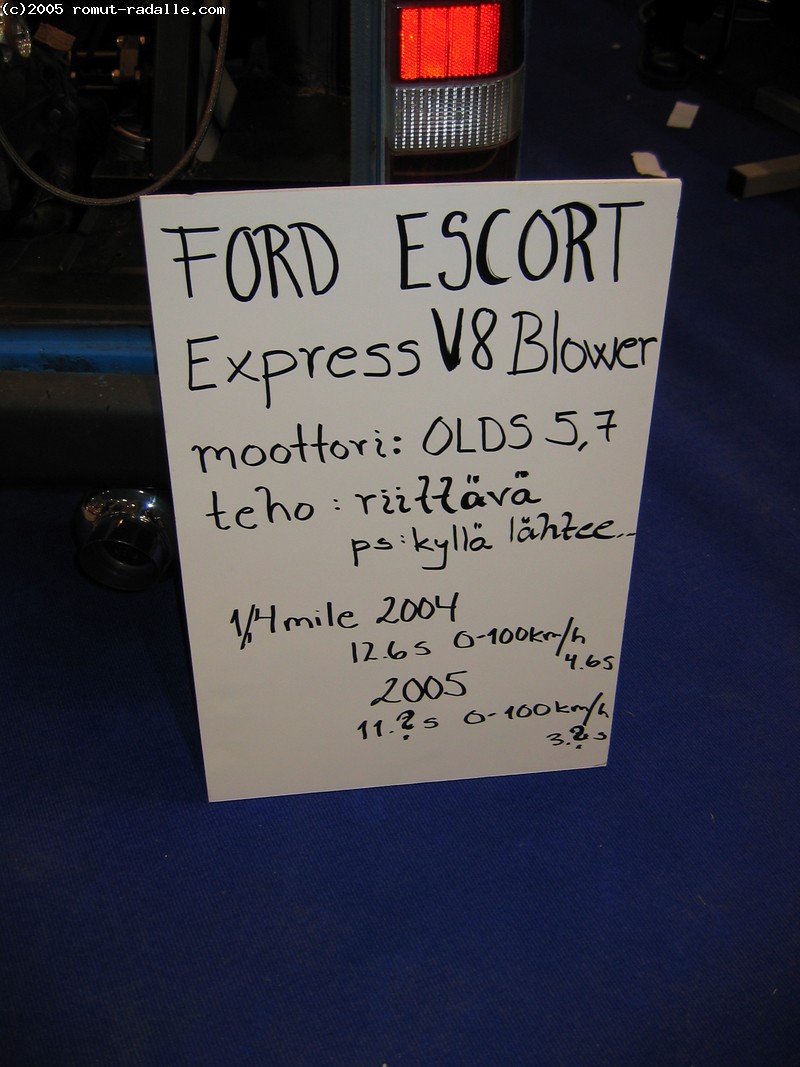 (c)2005 romut-radalle.com
FORD ESCORT
Express V8 Blower
moottori: OLDS 5,7
teho: riittävä
ps: kyllä lähtee...
1/4 mile 2004
12.6s 0-100km/h
4.6s
2005
11.?s 0-100km/h
3.?s